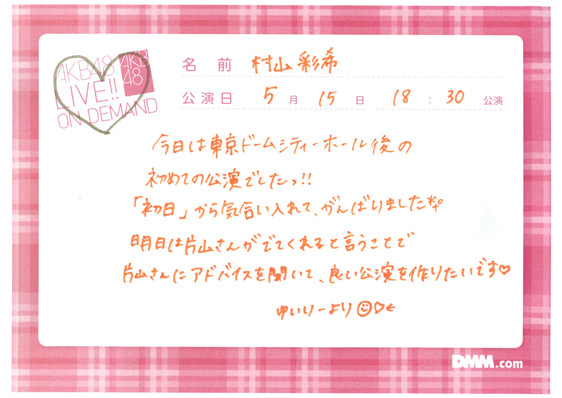 AKB48
LIVE!!
ON DEMAND
AKB
48
名 前 村山 彩希
公演日 5 月 15 日 18 : 30 公演
今日は東京ドームシティーホール後の
初めての公演でしたっ!!
「初日」から気合い入れて、がんばりました
明日は片山さんがでてくれると言うことで
片山さんにアドバイスを聞いて、良い公演を作りたいです♡
ゆいりーより☺♡
DMM.com